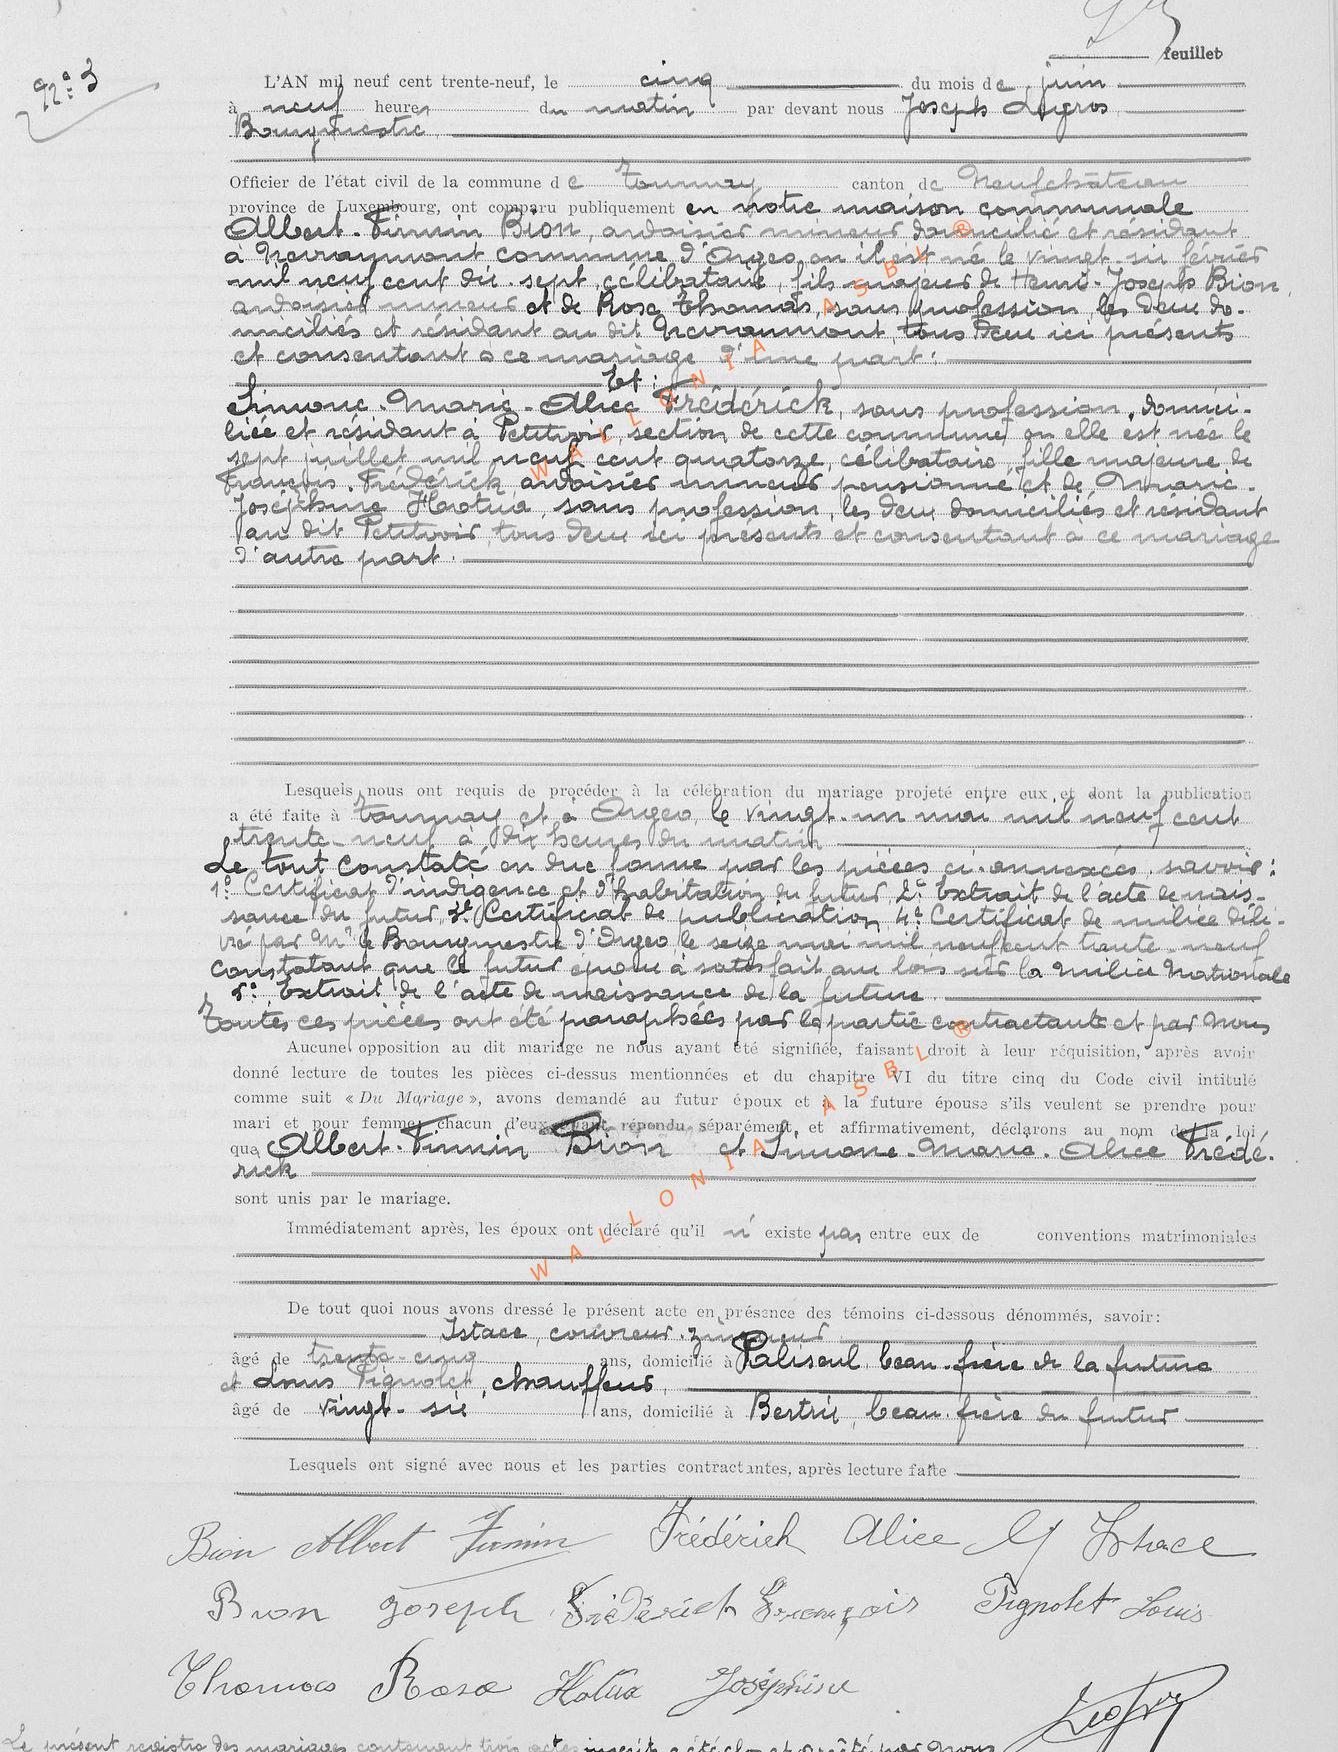 feuillet
N° 3
L'AN mil neuf cent trente-neuf, le cinq du mois de juin
à neuf heures du matin par devant nous Joseph Legros
Bourgmestre
Officier de l'état civil de la commune de Tournay canton de Neufchâteau
province de Luxembourg, ont comparu publiquement en notre maison communale
Albert-Firmin Bion, ardoisier mineur domicilié et résidant
à Nevraumont commune d'Orgeo où il est né le vingt-six février
mil neuf cent dix-sept, célibataire, fils majeur de Henri-Joseph Bion,
ardoisier mineur et de Rosa Thomas, sans profession, les deux do-
miciliés et résidant au dit Nevraumont, tous deux ici présents
et consentant à ce mariage d'une part:
Et:
Simone-Marie-Alice Frédérick, sans profession, domici-
liée et résidant à Petitvoir, section de cette commune où elle est née le
sept juillet mil neuf cent quatorze, célibataire, fille majeure de
François Frédérick, ardoisier mineur pensionné et de Marie-
Joséphine Hotua, sans profession, les deux domiciliés et résidant
au dit Petitvoir, tous deux ici présents et consentant à ce mariage
d'autre part.
Lesquels nous ont requis de procéder à la célébration du mariage projeté entre eux et dont la publication
a été faite à Tournay et à Orgeo, le vingt-un mai mil neuf cent
trente-neuf à dix heures du matin
Le tout constaté en due forme par les pièces ci-annexées, savoir:
1° Certificat d'indigence et d'habitation du futur 2° Extrait de l'acte de nais-
sance du futur 3° Certificat de publication 4° Certificat de milice déli-
vré par Mr le Bourgmestre d'Orgeo le seize mai mil neuf cent trente-neuf
constatant que le futur époux à satisfait aux lois sur la Milice Nationale
5° Extrait de l'acte de naissance de la future.
Toutes ces pièces ont été paraphées par la partie contractante et par Nous
Aucune opposition au dit mariage ne nous ayant été signifiée, faisant droit à leur réquisition, après avoir
donné lecture de toutes les pièces ci-dessus mentionnées et du chapitre VI du titre cinq du Code civil intitulé
comme suit « Du Mariage », avons demandé au futur époux et à la future épouse s'ils veulent se prendre pour
mari et pour femme, chacun d'eux ayant répondu séparément et affirmativement, déclarons au nom de la loi
que Albert-Firmin Bion et Simone-Marie-Alice Frédé-
rick
sont unis par le mariage.
Immédiatement après, les époux ont déclaré qu'il n'existe pas entre eux de conventions matrimoniales
De tout quoi nous avons dressé le présent acte en présence des témoins ci-dessous dénommés, savoir:
Istace, couvreur-zingueur
âgé de trente-cinq ans, domicilié à Paliseul, beau-frère de la future
et Louis Pignolet, chauffeur,
âgé de vingt-six ans, domicilié à Bertrix, beau-frère du futur
Lesquels ont signé avec nous et les parties contractantes, après lecture faite
Bion Albert Firmin Frédérick Alice Istace
Bion Joseph Frédérick François Pignolet Louis
Thomas Rosa Hotua Joséphine
Legros
Le présent registre des mariages contenant trois actes inscrits a été clos et arrêté par Nous
WALLONIA ASBL ®
WALLONIA ASBL ®